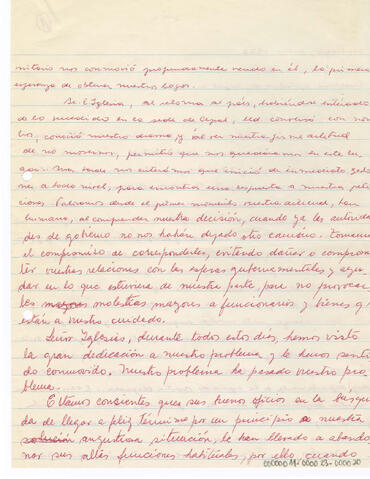 nitario nos conmovió profundamente viendo en él, la primera
esperanza de obtener nuestros logros.
Sr. E. Iglesia, al retorno al país, habiéndose enterado
de lo sucedido en la sede de Cepal, Ud conversó con noso
tros, conoció nuestro drama y al ver nuestra firme actitud
de no movernos, permitió que nos quedáramos en este lu
gar. Mas tarde nos enteramos que inició de inmediato gestio
nes a todo nivel, para encontrar una respuesta a nuestras peti
ciones. Valoramos desde el primer momento vuestra actitud, tan
humana, al comprender nuestra decisión, cuando ya las autorida
des de gobierno no nos habían dejado otro camino. Tomamos
el compromiso de corresponderles, evitando dañar o comprome
ter vuestras relaciones con las esferas gubernamentales y ayu
dar en lo que estuviera de nuestra parte, para no provocar
les mayores molestias mayores a funcionarios y bienes q'
están a vuestro cuidado.
Señor Iglesias, durante todos estos días, hemos visto
la gran dedicación a nuestro problema y le hemos senti
do conmovido. Nuestro problema ha pasado vuestro pro
blema.
Estamos conscientes que sus buenos oficios en la búsque
da de llegar a feliz término por un principio a nuestra
solución angustiosa situación, le han llevado a abando
nar sus altas funciones habituales, por ello cuando
000000 11-0000 23-0000 20